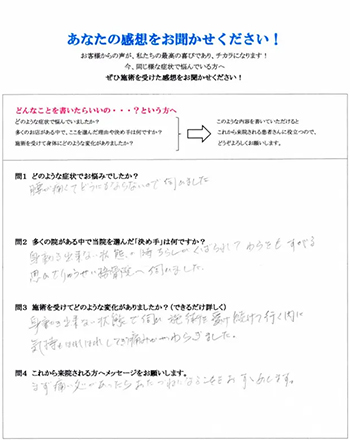 あなたの感想をお聞かせください！
お客様からの声が、私たちの最高の喜びであり、チカラになります！
今、同じ様な症状で悩んでいる方へ
ぜひ施術を受けた感想をお聞かせください！
どんなことを書いたらいいの・・・？という方へ
どのような症状で悩んでいましたか？
多くのお店がある中で、ここを選んだ理由や決め手は何ですか？
施術を受けて身体にどのような変化がありましたか？
このような内容を書いていただけると
これから来院される患者さんに役立つので、
どうぞよろしくお願いします。
問1 どのような症状でお悩みでしたか？
腰が痛くてどうにもならないので伺いました
問2 多くの院がある中で当院を選んだ「決め手」は何ですか？
身動き出来ない状態の時ちらしが
整骨院へ伺いました。
問3 施術を受けてどのような変化がありましたか？（できるだけ詳しく）
身動き出来ない状態で伺い施術を受け続けて行く内に
気持もはればれしてき痛みがやわらぎました。
問4 これから来院される方へメッセージをお願いします。
まず痛い処があったら